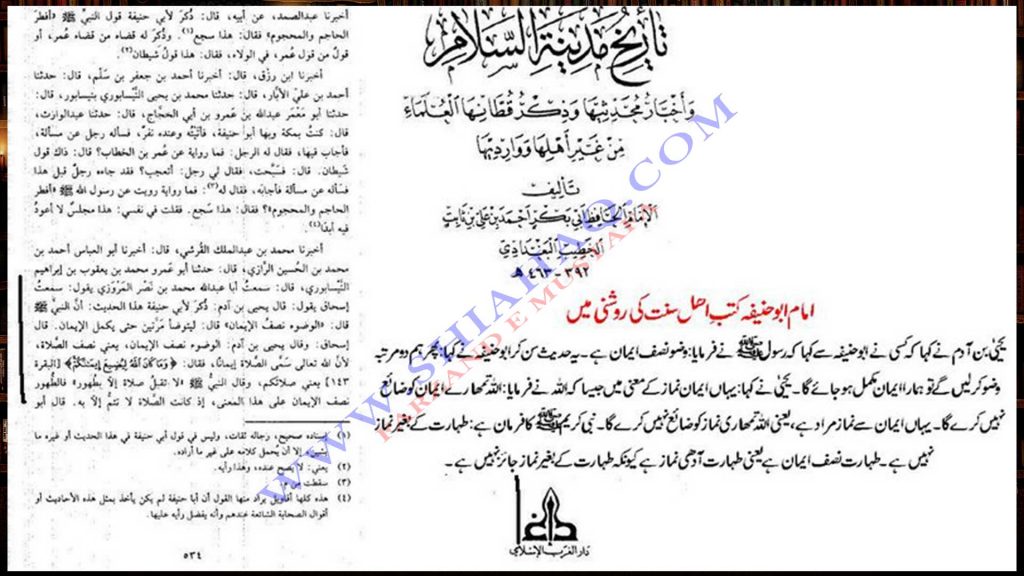 أخبرنا عبدالصمد، عن أبيه، قال: ذُكرَ لأبي حنيفة قول النبيِّ ﷺ «أفطر
الحاجم والمحجوم» فقال: هذا سجع(١). وذُكرَ له قضاء من قضاء عمر، أو
قولٌ من قول عُمر، في الولاء، فقال: هذا قولُ شيطان(٢).
أخبرنا ابن رزق، قال: أخبرنا أحمد بن جعفر بن سَلْم، قال: حدثنا
أحمد بن علي الأبَّار، قال: حدثنا محمد بن يحيى النَّيسابوري بنيسابور، قال:
حدثنا أبو مَعْمَر عبدالله بن عَمرو بن أبي الحجَّاج، قال: حدثنا عبدالوارث،
قال: كنتُ بمكة وبها أبو حنيفة، فأتيْتُه وعنده نَفَرٌ، فسأله رجل عن مسألة،
فأجاب فيها، فقال له الرجل: فما رواية عن عُمر بن الخطاب؟ قال: ذاك قول
شيطان. قال: فسبَّحت، فقال لي رجل: أتعجب؟ فقد جاءه رجلٌ قبل هذا
فسأله عن مسألة فأجابه، فقال له(٣): فما رواية رويت عن رسول الله ﷺ «أفطر
الحاجم والمحجوم»؟ فقال: هذا سَجع. فقلت في نفسي: هذا مجلسٌ لا أعودُ
فيه أبدًا(٤).
أخبرنا محمد بن عبدالملك القُرشي، قال: أخبرنا أبو العباس أحمد بن
محمد بن الحُسين الرَّازي، قال: حدثنا أبو عمرو محمد بن يعقوب بن إبراهيم
النَّيسابوري، قال: سمعتُ أبا عبدالله محمد بن نَصْر المَرْوَزي يقول: سمعتُ
إسحاق يقول: قال يحيى بن آدم: ذُكرَ لأبي حنيفة هذا الحديث: أنَّ النبيَّ ﷺ
قال: «الوضوء نصفُ الإيمان» قال: ليتوضأ مرَّتين حتى يكمل الإيمان. قال
إسحاق: وقال يحيى بن آدم: الوضوء نصف الإيمان، يعني نصف الصَّلاة،
لأنَّ الله تعالى سمَّى الصلاة إيمانًا، فقال: ﴿وَمَا كَانَ اللَّهُ لِيُضِيعَ إِيمَانَكُمْ﴾ [البقرة
١٤٣] يعني صلاتكم، وقال النبيُّ ﷺ «لا تقبلُ صلاة إلاّ بطهور» فالطهور
نصف الإيمان على هذا المعنى، إذ كانت الصَّلاة لا تتمُّ إلاّ به. قال أبو
(١) إسناده صحيح، رجاله ثقات، وليس في قول أبي حنيفة في هذا الحديث أو غيره ما
يُشين، إلا أن يُحمل كلامه على غير ما أراده.
(٢) يعني: لا يصح عنده، وهذا رأيه.
(٣) سقطت من م.
(٤) هذه كلها أقاويل يراد منها القول أن أبا حنيفة لم يكن يأخذ بمثل هذه الأحاديث أو
أقوال الصحابة الشائعة عندهم وأنه يفضل رأيه عليها.
٥٣٤
تاريخ مدينة السلام
وأخبار محدثيها وذكر قطانها العلماء
من غير أهلها وواردیها
تأليف
الإمام الحافظ أبي بكر أحمد بن علي بن ثابت
الخطيب البغدادي
٣٩٢ - ٤٦٣ هـ
امام ابو حنیفہ کتب اھل سنت کی روشنی میں
یحییٰ بن آدم نے کہا کہ کسی نے ابو حنیفہ سے کہا کہ رسول ﷺ نے فرمایا: وضو نصف ایمان ہے۔ یہ حدیث سن کر ابو حنیفہ نے کہا: پھر ہم دو مرتبہ
وضو کر لیں گے تو ہمارا ایمان مکمل ہو جائے گا۔ یحییٰ نے کہا: یہاں ایمان نماز کے معنی میں جیسا کہ اللہ نے فرمایا: اللہ تمھارے ایمان کو ضائع
نہیں کرے گا۔ یہاں ایمان سے نماز مراد ہے، یعنی اللہ تمھاری نماز کو ضائع نہیں کرے گا۔ نبی کریم ﷺ کا فرمان ہے: طہارت کے بغیر نماز
نہیں ہے۔ طہارت نصف ایمان ہے یعنی طہارت آدھی نماز ہے کیونکہ طہارت کے بغیر نماز جائز نہیں ہے۔
دار الغرب الإسلامي
WWW.SHIAHAQ.COM
FARZAND E MUSTAFA